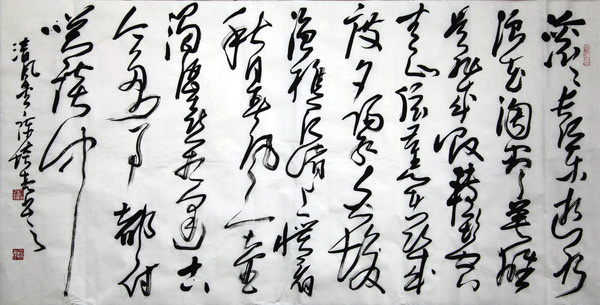 滚滚长江东逝水
浪花淘尽英雄
是非成败转头空
青山依旧在几
度夕阳红白发
渔樵江渚上惯看
秋月春风一壶
浊酒喜相逢古
今多少事都付
笑谈中
清风